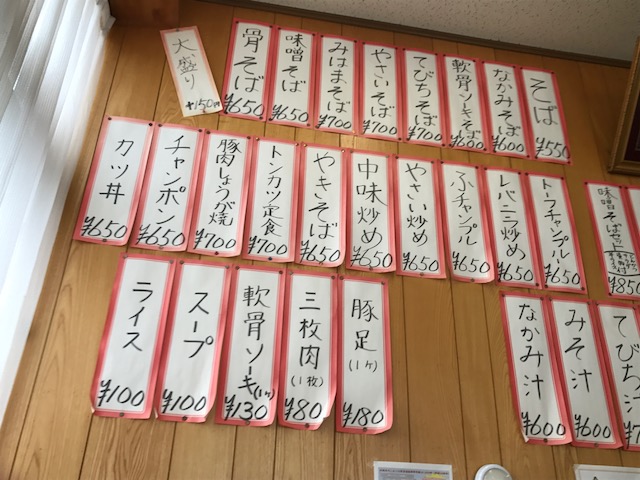 そば ¥550
なかみそば ¥600
軟骨ソーキそば ¥600
てびちそば ¥700
やさいそば ¥700
みはまそば ¥700
味噌そば ¥650
骨そば ¥650
大盛り +150円
味噌そばセット
¥850
トーフチャンプル ¥650
レバニラ炒め ¥650
ふチャンプル ¥650
やさい炒め ¥650
中味炒め ¥650
やきそば ¥650
トンカツ定食 ¥700
豚肉しょうが焼 ¥700
チャンポン ¥650
カツ丼 ¥650
てびち汁
みそ汁 ¥600
なかみ汁 ¥600
豚足(1ヶ) ¥180
三枚肉(1枚) ¥80
軟骨ソーキ(1ヶ) ¥130
スープ ¥100
ライス ¥100